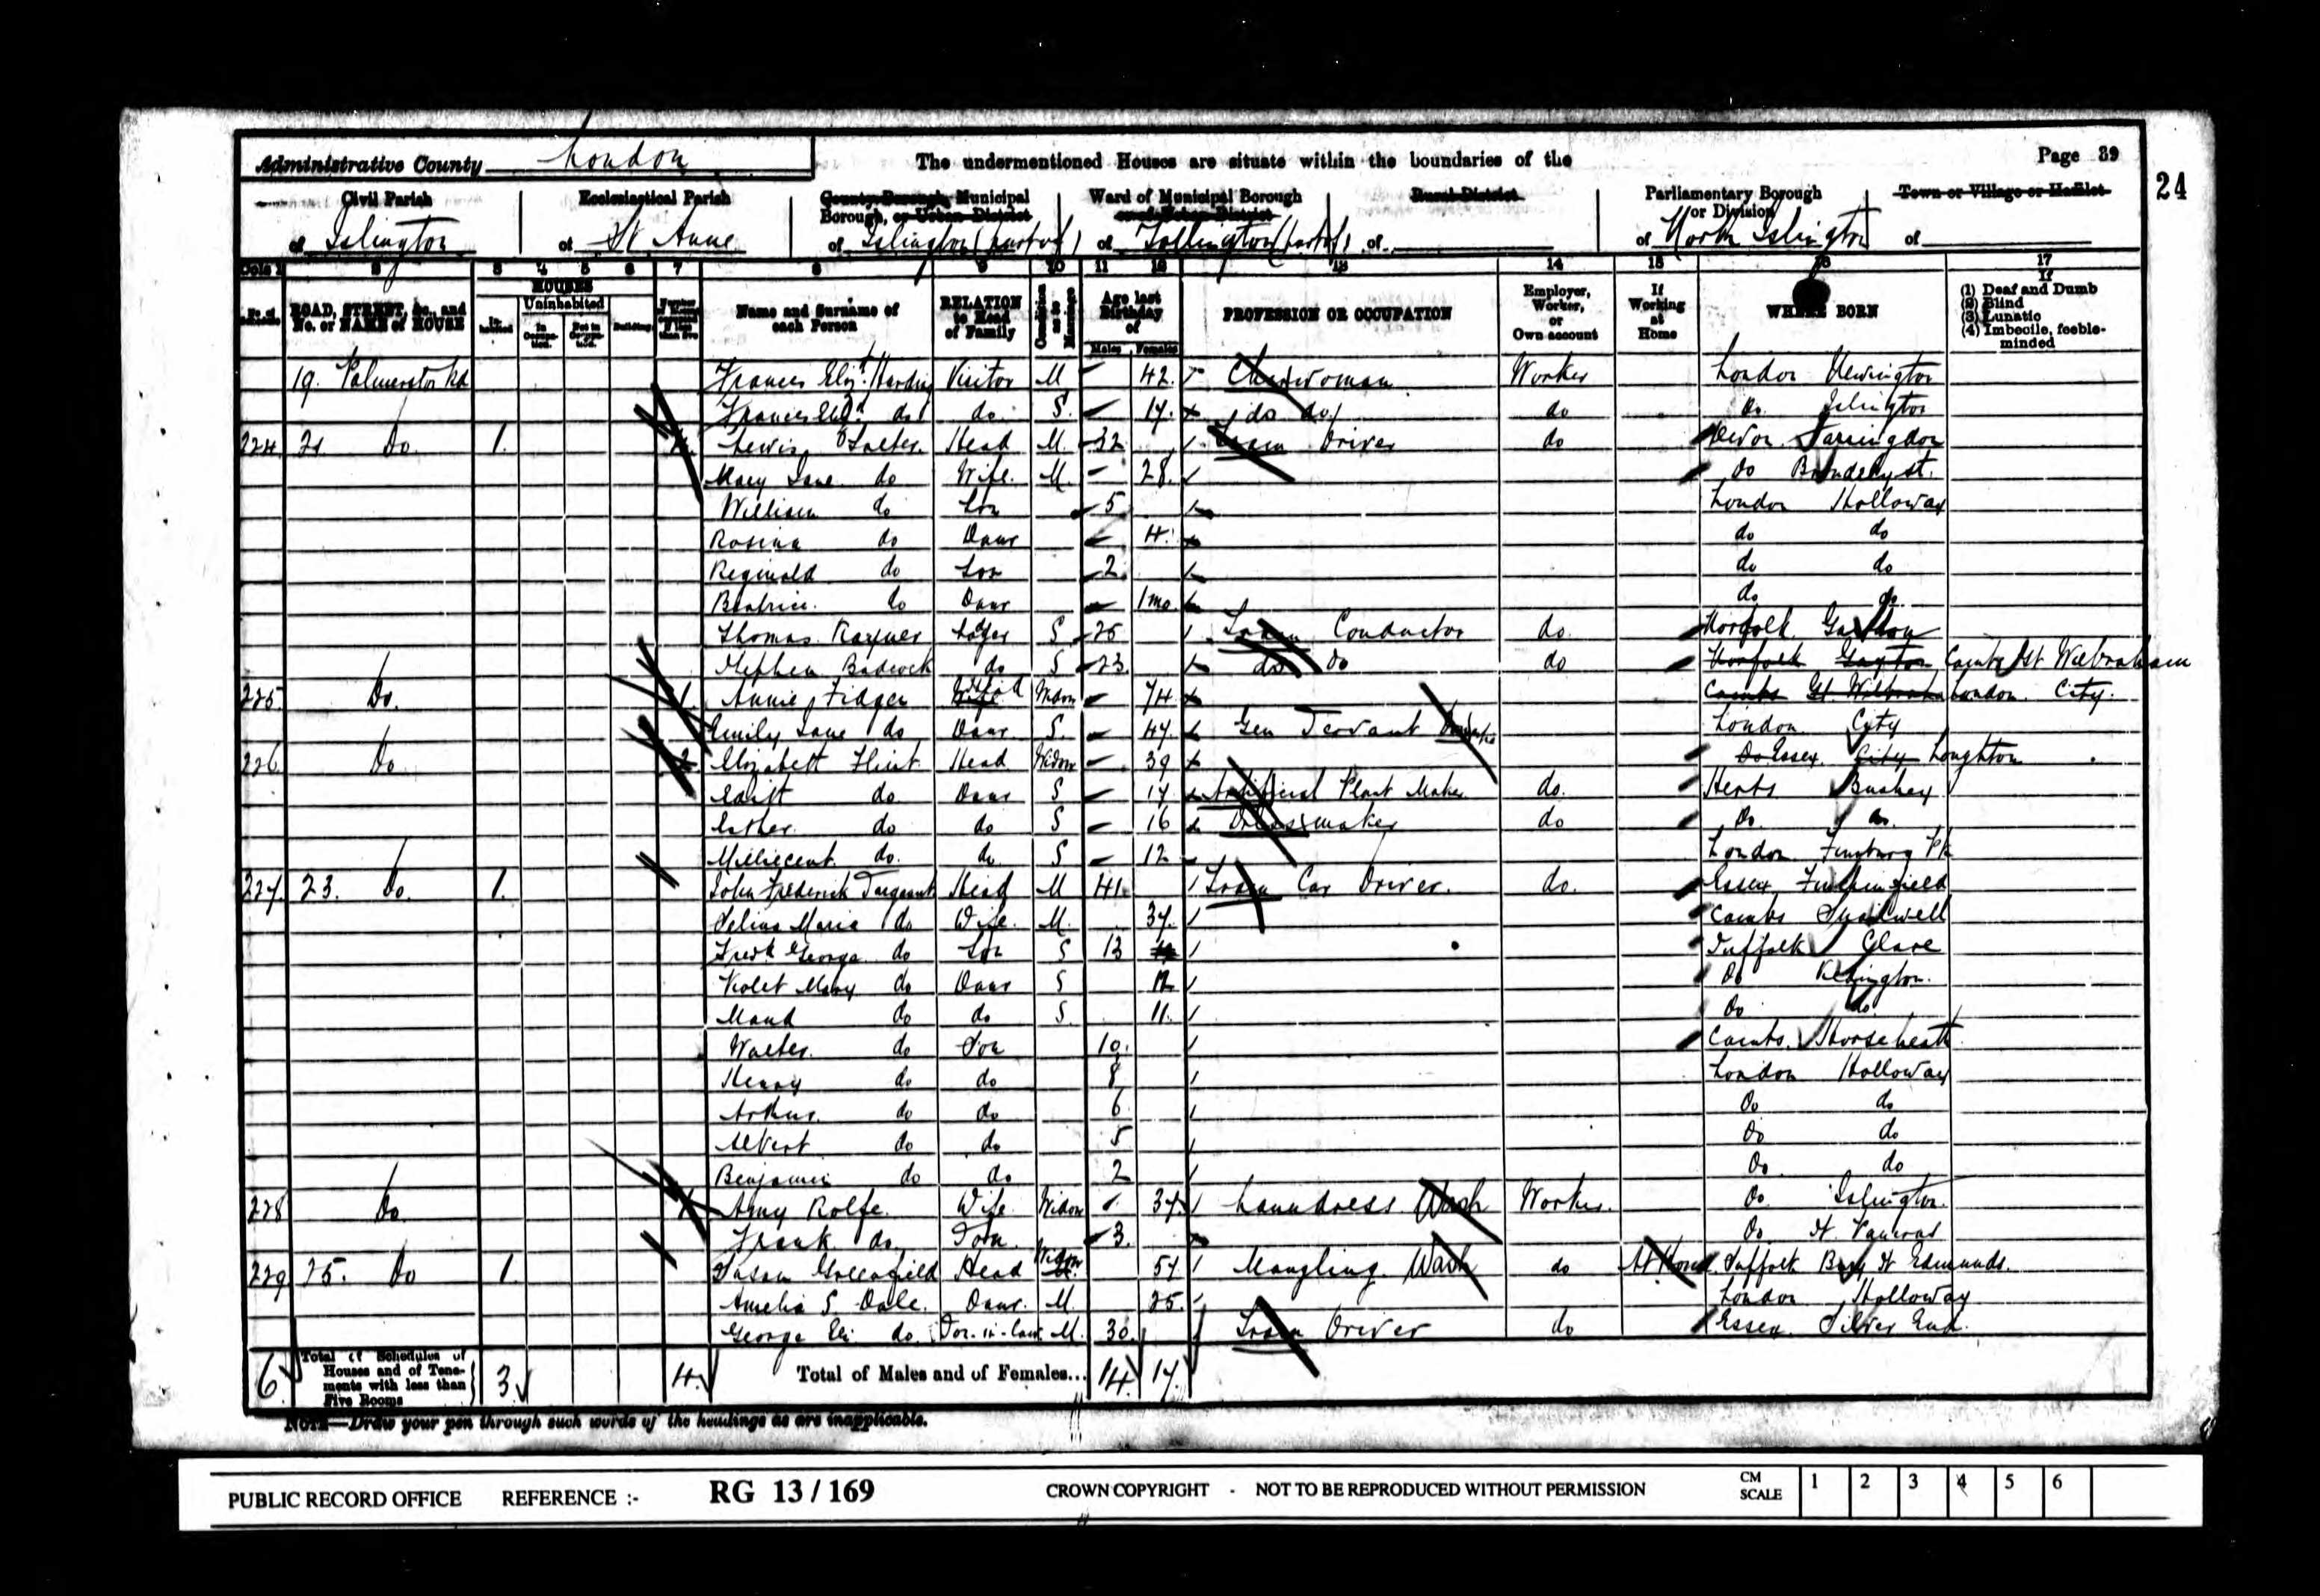 Administrative County London
The undermentioned Houses are situate within the boundaries of the
Page 39
24
Civil Parish
Ecclesiastical Parish
County Borough, Municipal Borough, or Urban District
Ward of Municipal Borough or of Urban District
Rural District
Parliamentary Borough or Division
Town or Village or Hamlet
of Islington
of St Anne
of Islington (part of)
of Tollington (part of)
of
of North Islington
of
Cols 1 2 3 4 5 6 7 8 9 10 11 12 13 14 15 16 17
No. of Schedule
ROAD, STREET, &c., and No. or NAME of HOUSE
HOUSES
Uninhabited
Name and Surname of each Person
RELATION to Head of Family
Condition as to Marriage
Age last Birthday of
Males Females
PROFESSION OR OCCUPATION
Employer, Worker, or Own account
If Working at Home
WHERE BORN
If (1) Deaf and Dumb (2) Blind (3) Lunatic (4) Imbecile, feeble-minded
19. Palmerston Rd Frances Eliz. Harding Visitor M 42 Charwoman Worker London
do do. S. 17. do do do Do. Islington
224 21 Do. 1. Lewis Head M. 32 Tram Driver do Devon
Mary Jane do Wife. M. 28. do
William do Son 5 London Holloway
Rosina do Daur 4. do do
Reginald do Son 2. do do
Beatrice. do Daur 1 mo. do do.
Thomas Rayner Lodger S 25 Tram Conductor do. Norfolk Gayton
Stephen Badcock do S 23. do do do Norfolk Gayton Cambs Gt Wilbraham
225 Do. Annie Fidger Wife Head Widow 74 Cambs Gt Wilbraham London. City.
Emily Jane do Daur S. 47 Gen Servant London. City
226 Do Elizabeth Flint Head Widow 39 Do Essex. City Loughton
Edith do. Daur S 17 Artificial Plant Maker do. Herts Bushey
Esther. do do S 16 Dressmaker do Do. do.
Millicent do. do S 12 London Finsbury Pk
227. 23. Do. 1. John Frederick Sargeant Head M 41 Tram Car Driver. do. Essex Finchinfield
Selina Maria do Wife. M. 37. Cambs Snailwell
Fredk George. do Son S 13 Suffolk Clare
Violet Mary do Daur S 12 Do Kedington.
Maud do do S. 11. Do do.
Walter. do Son 10. Cambs. Horseheath
Henry do do 8 London Holloway
Arthur. do do 6 Do do
Albert do do 5 Do do
Benjamin do do 2 Do. do
228 Do. Amy Rolfe. Wife Widow 37. Laundress Wash Worker. Do. Islington.
Frank do. Son. 3. Do. St. Pancras
229 25. Do 1. Susan Greenfield Head Widow 57 Mangling. Wash do At Home. Suffolk Bury St Edmunds.
Amelia S Dale. Daur. M. 25. London Holloway
George Eli do. Son-in-law M. 30. Tram Driver do Essex. Silver End.
6 Total of Schedules of Houses and of Tenements with less than Five Rooms 3 4. Total of Males and of Females... 14. 17.
NOTE—Draw your pen through such words of the headings as are inapplicable.
PUBLIC RECORD OFFICE REFERENCE :- RG 13 / 169 CROWN COPYRIGHT - NOT TO BE REPRODUCED WITHOUT PERMISSION CM SCALE 1 2 3 4 5 6